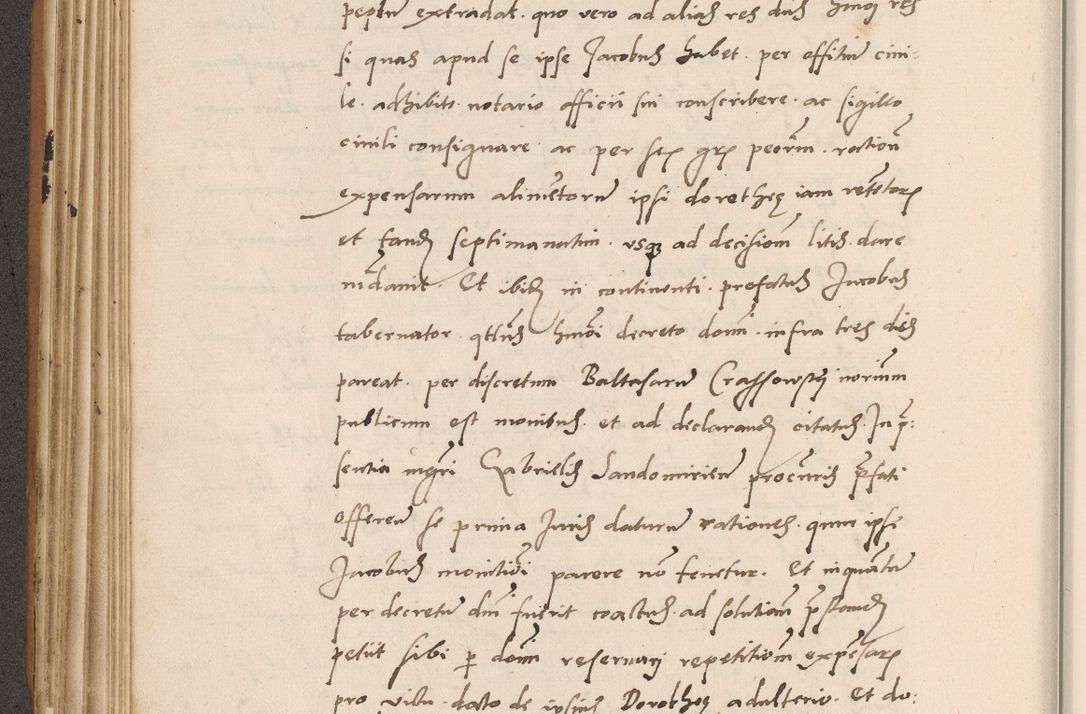 peptu extradat. quo vero ad alias res dns hmoi res
si quas apud se ipse Jacobus habet. per offitiu civi-
le. adhibito notario officii sui conscribere. ac sigillo
civili consignare ac per se grs peorm. ration
expensarum alimetoru ipsi dorotheę iam retetors
et tand septimanatim. usq ad decisiom litis dare
mdavit. Et ibid in continenti. prefatus Jacobus
tabernator. qtus hmoi decreto domi. infra tres dies
pareat. per discretum Baltasaru Crassowsky norium
publicum est monitus. et ad declarand citatus. In p:
sentia mgri Gabrielis Sandomirien procuris pfati
offeren se prima Juris daturu rationes. quia ipse
Jacobus monitioi parere no tenetur. Et inquantu
per decretu dni fuerit coactus. ad solutiom pstand
petiit sibi p domi reservari repetitiom expesars
pro victu. dato de ipsius Dorotheę adulterio. Et do: